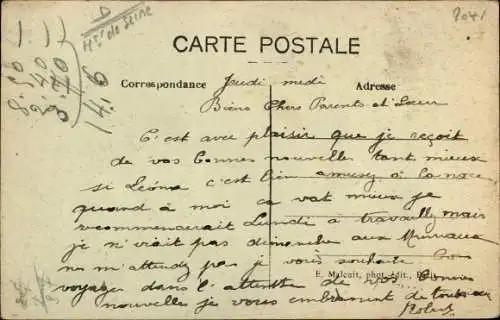 D
Hts de Seine
2041
CARTE POSTALE
Correspondance Jeudi midi Adresse
Biens Chers Parents et Sœur
C'est avec plaisir que je reçoit
de vos bonnes nouvelle tant mieux
si Léona c'est bien amusez à la noce
quand à moi ca vat mieux je
recommencerait Lundi à travailly mais
je n'virait pas dimanche aux
ne m'attendez pas je vous souhaite bon
E. Malcuit, phot.-édit.,
voyage dans l'attentte de vos bonnes
nouvelle je vous embrassent de tout
Robert